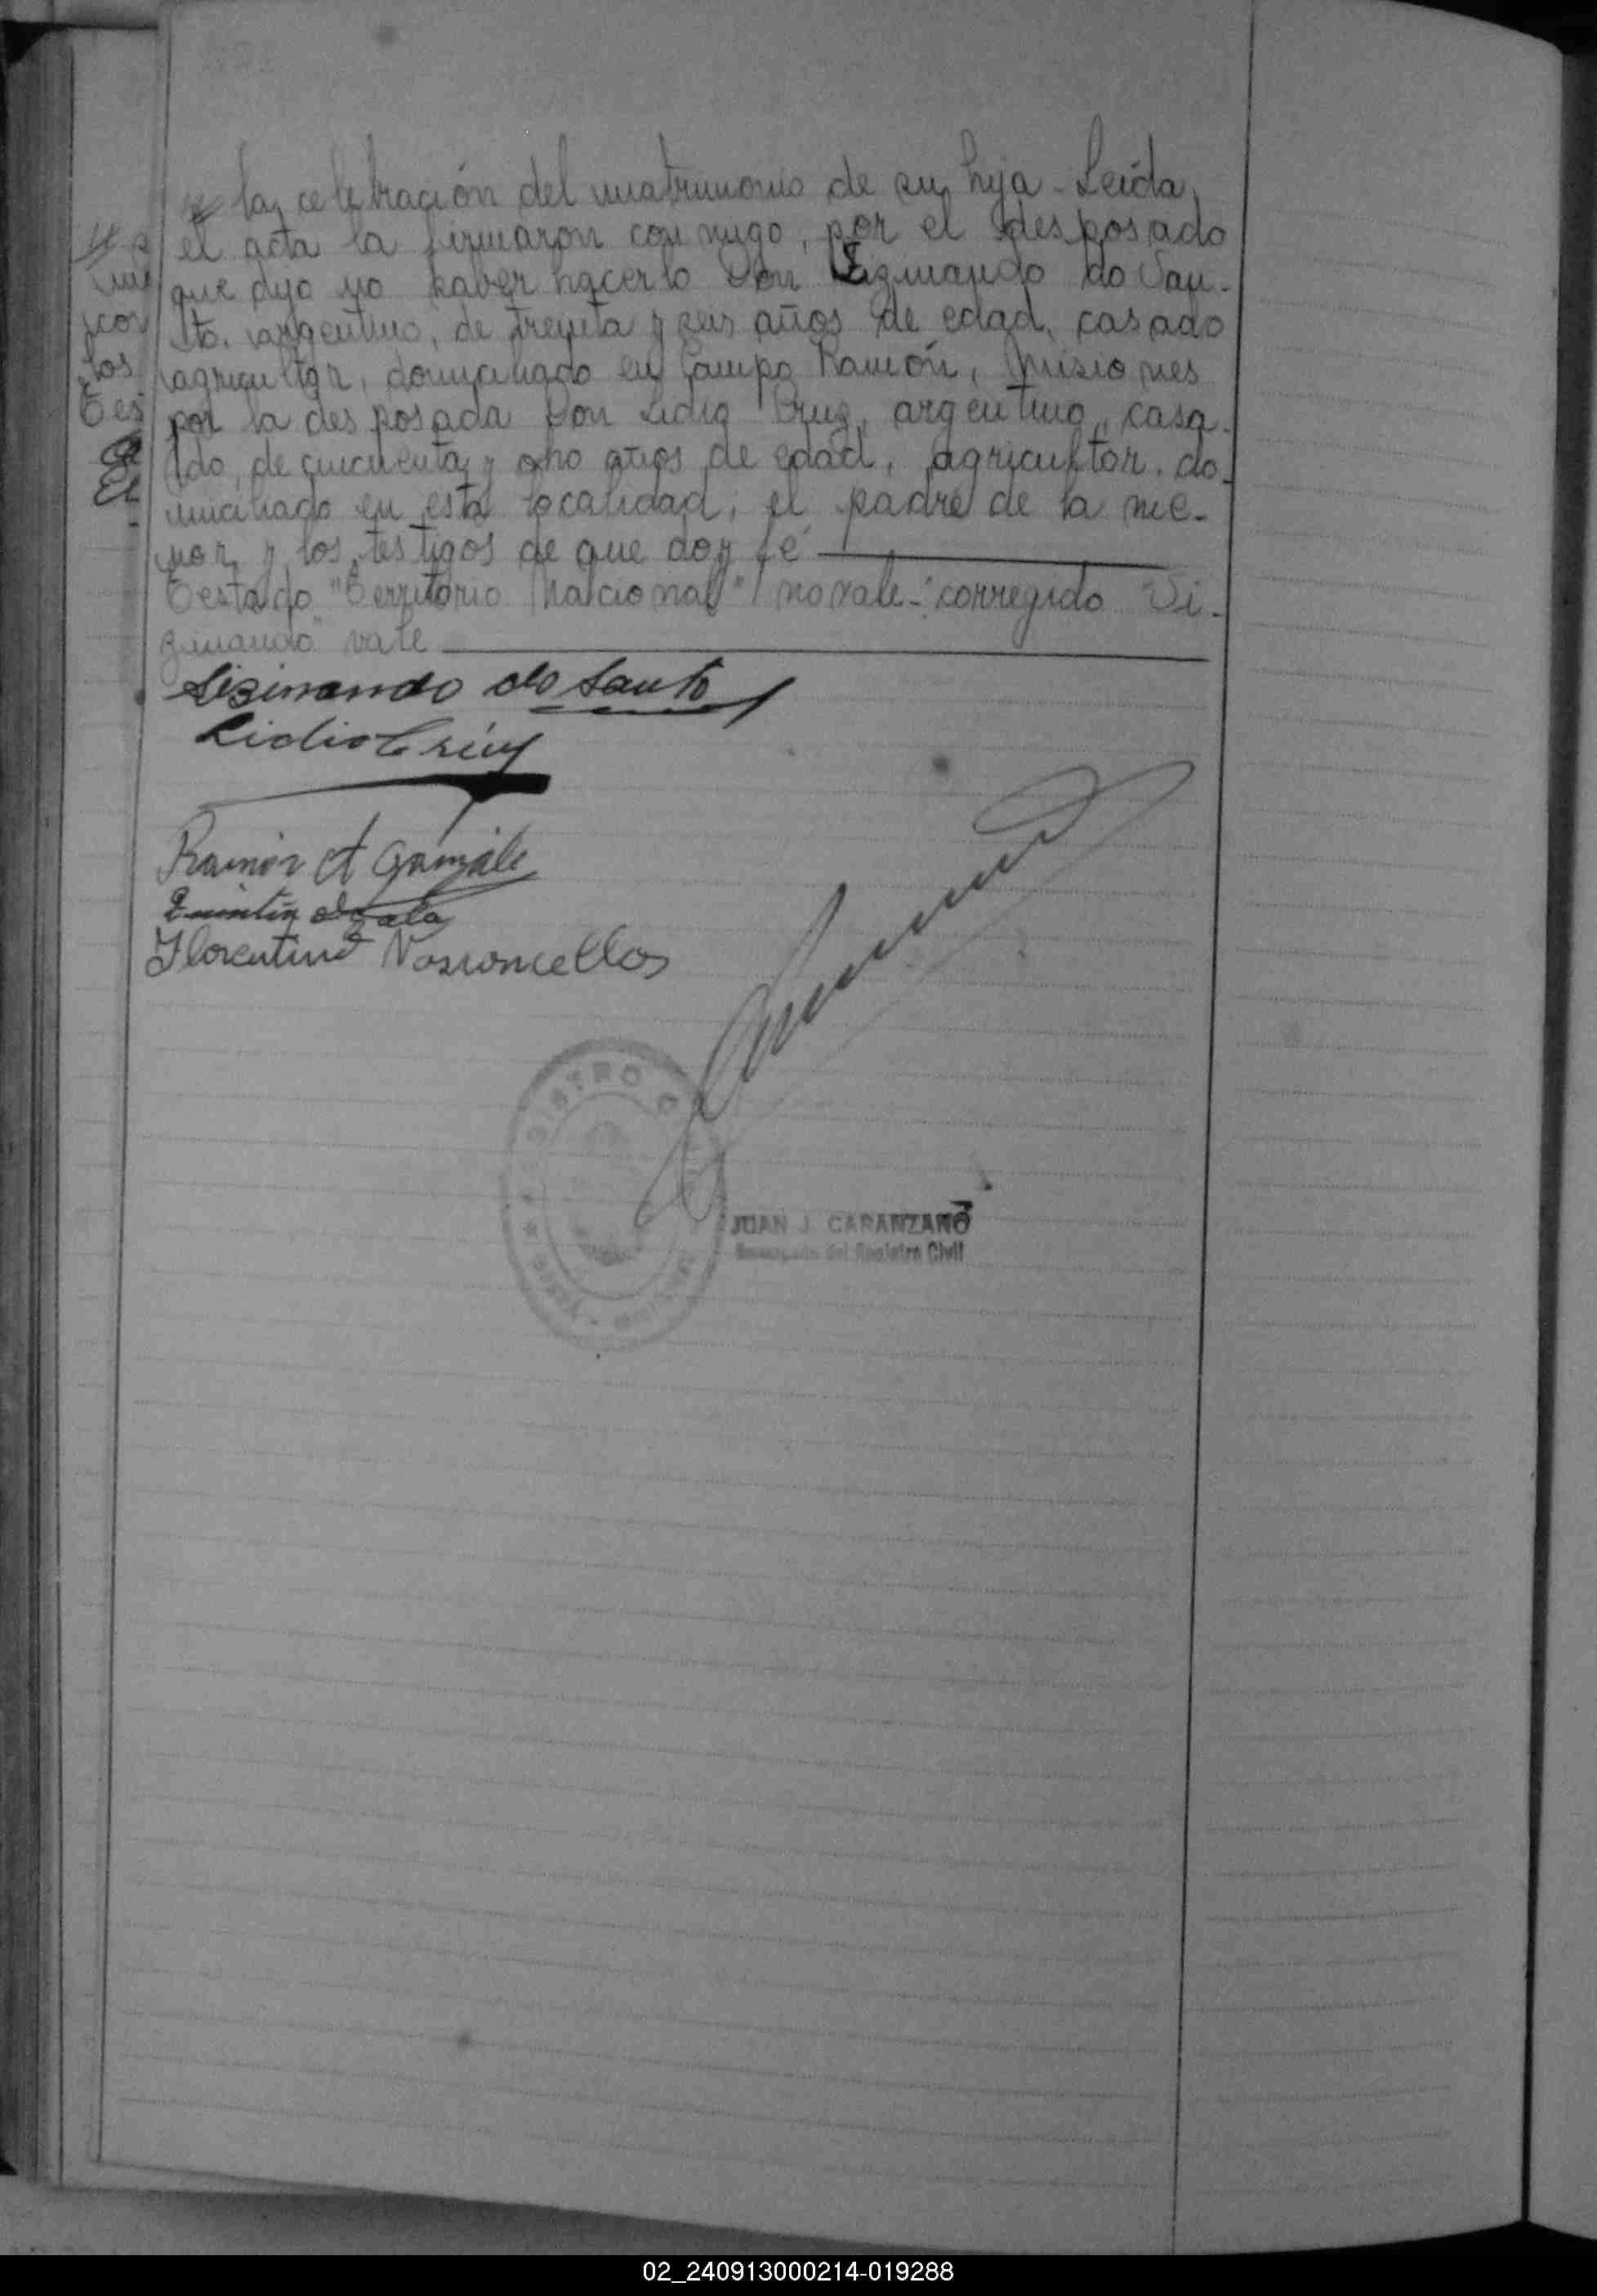 la celebración del matrimonio de su hija - Leída
el acta la firmaron conmigo, por el desposado
que dijo no saber hacerlo Don Sizinando do San-
to, argentino, de treinta y seis años de edad, casado
agricultor, domiciliado en Campo Ramón, Misiones
por la desposada Don Lidio Cruz, argentino, casa-
do, de cincuenta y oho años de edad, agricultor, do-
miciliado en esta localidad, el padre de la me-
nor y los testigos de que doy fé
Testado "Territorio Nacional" no vale - corregido "Si-
zinando" vale
Sizinando do Santo
Lidio Cruz
Ramón A Gonzále
Quintin
Florentino Vasconcellos
REGISTRO C
JUAN J. CARANZANO
Encargado del Registro Civil
02_240913000214-019288